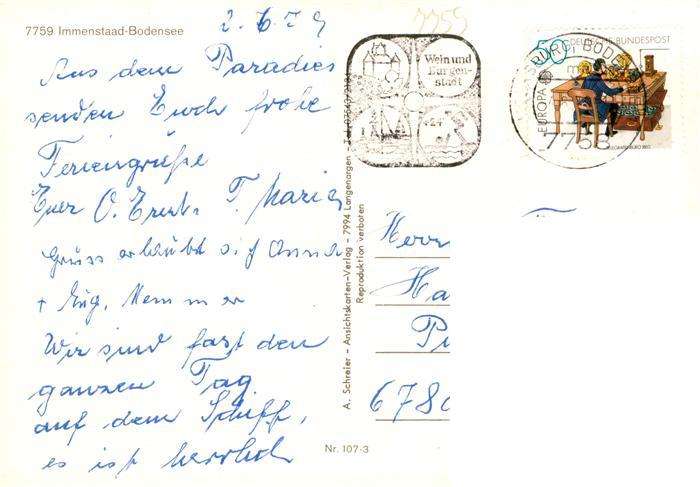 7759 Immenstaad-Bodensee
2.6.79
7759
Aus dem Paradies
senden Euch frohe
Feriengrüße
Euer O. Ernst. T. Maria
Grüss erlaubt sich Anna
+ Eug.
Wir sind fast den
ganzen Tag
auf dem Schiff,
es ist herrlich
Nr. 107-3
A. Schreier - Ansichtskarten-Verlag - 7994 Langenargen
Reproduktion verboten
Wein und
Burgen-
stadt
50
DEUTSCHE BUNDESPOST
EUROPA
BURG, BODEN
7758
Herrn
Ha
P
678